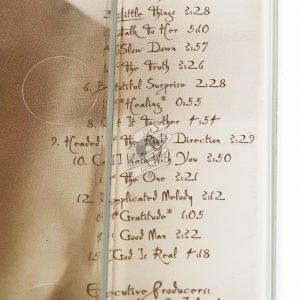 2. Little Things 3:28
Talk To Her 5:10
Slow Down 3:57
The Truth 3:26
6. Beautiful Surprise 2:28
*Healing* 0:55
8. Get It Together 4:54
9. Headed In The Right Direction 3:29
10. Can I Walk With You 3:50
The One 3:21
12. Complicated Melody 3:12
*Gratitude* 1:05
Good Man 3:32
15. God Is Real 4:18
Executive Producers: